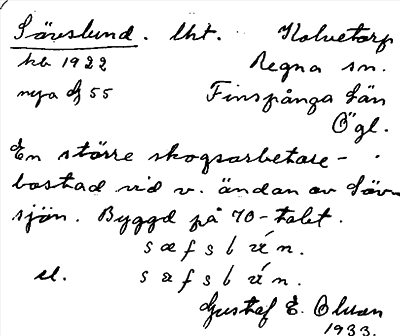 Sävslund. lht. Kolvetorp
hb 1922 Regna sn.
nya G 55 Finspånga Län
Ögl.
En större skogsarbetare-
bostad vid v. ändan av Säv-
sjön. Byggd på 70-talet.
s æ f s l ú n.
el. s a f s l ú n.
Gustaf E. Olsson
1933.